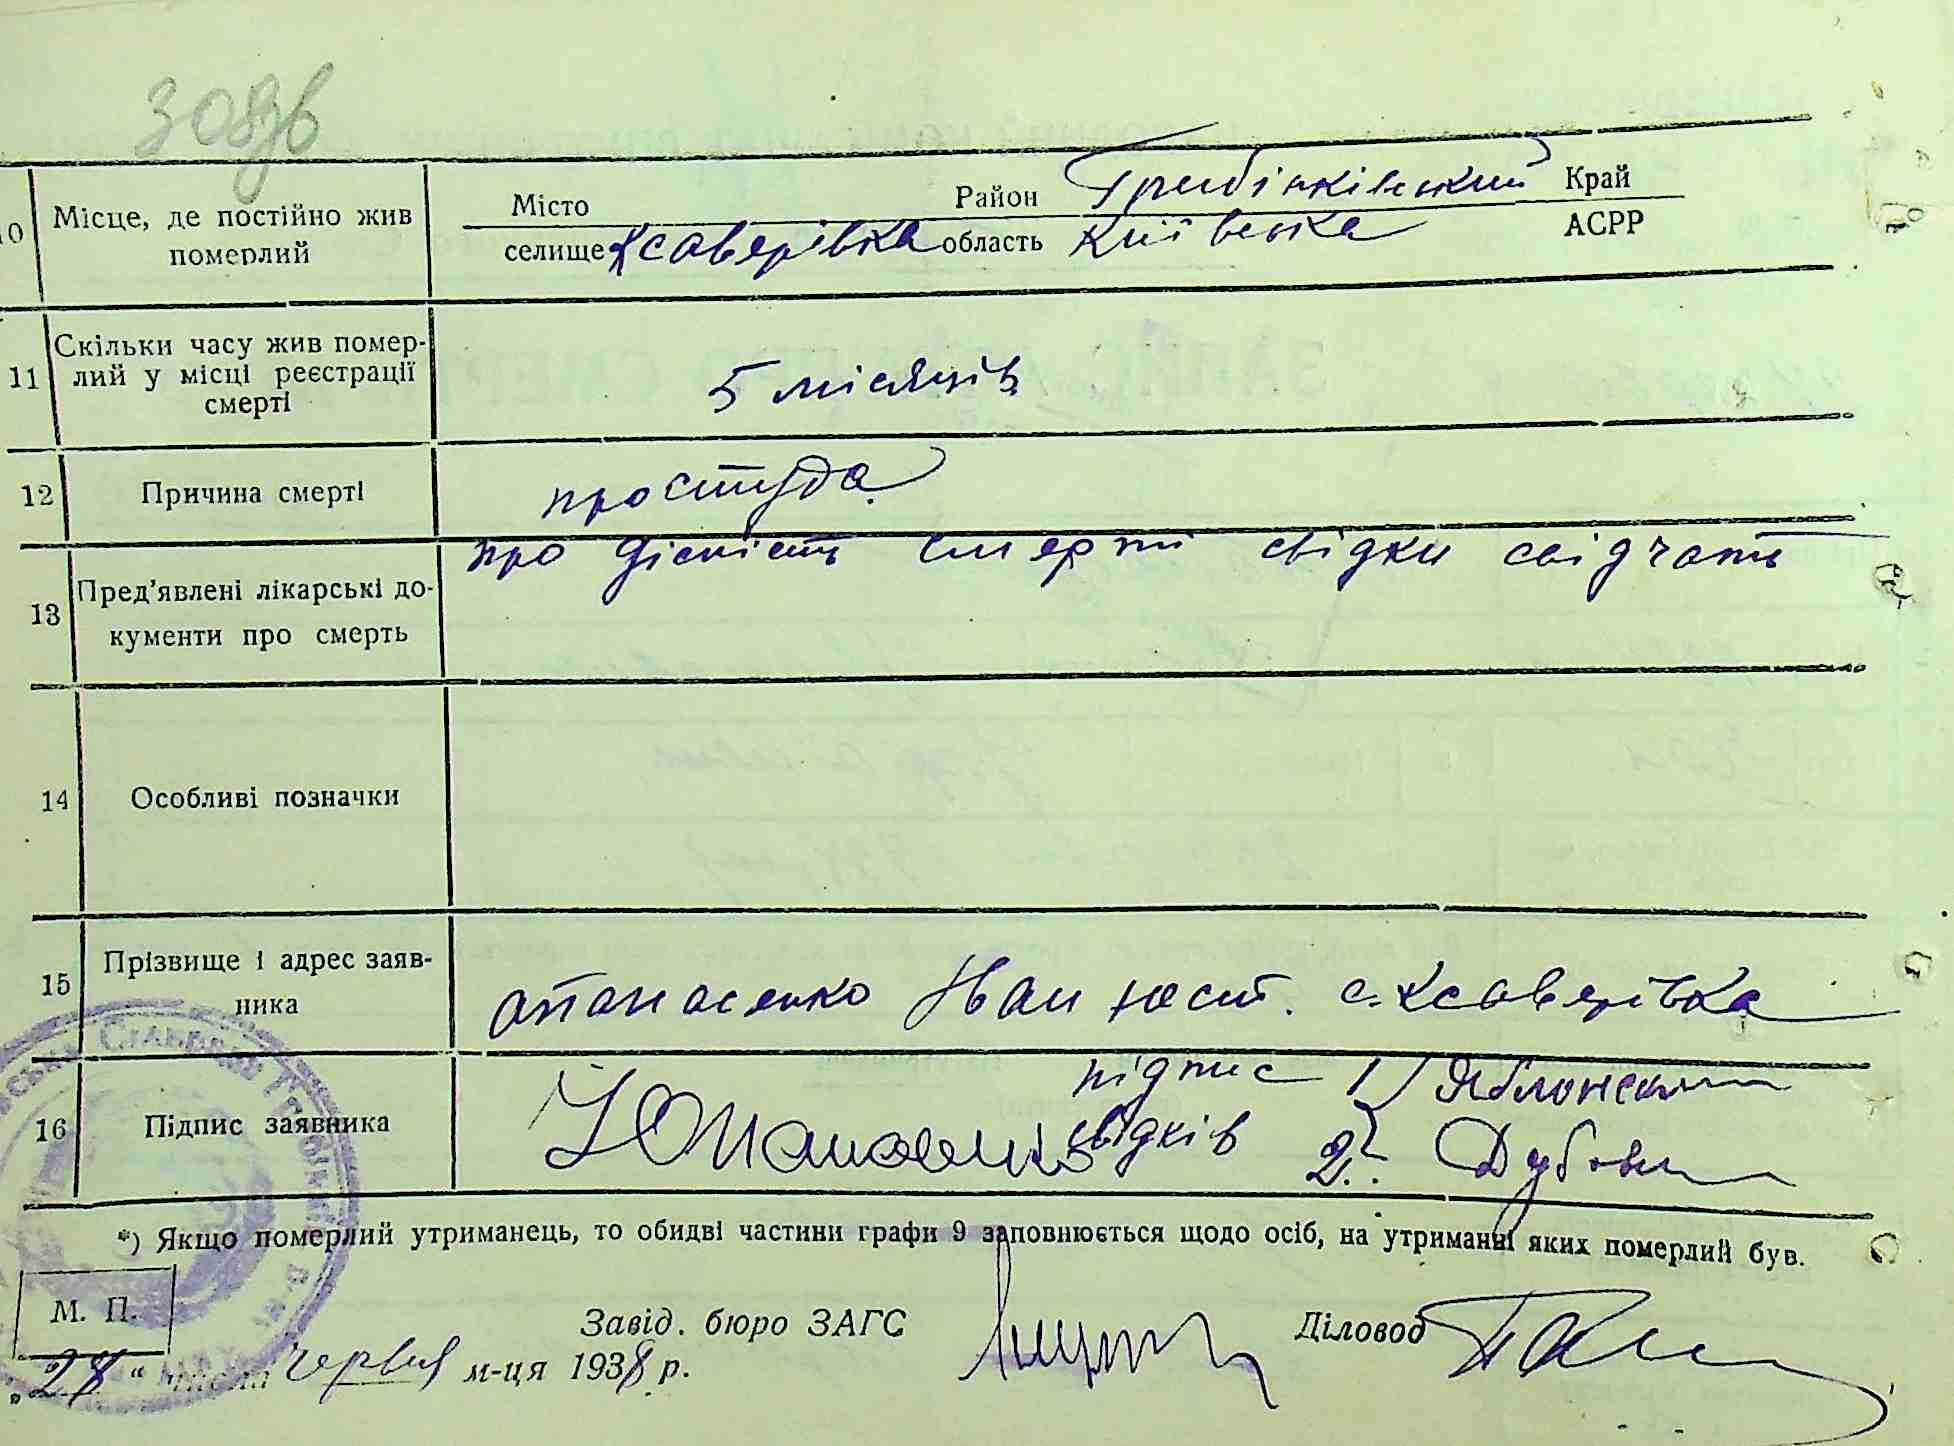 10 Місце, де постійно жив Місто Район Гребінківський Край
померлий селище Ксаверівка область Київська АСРР
11 Скільки часу жив помер-
лий у місці реєстрації 5 місяців
смерті
12 Причина смерті простуда
про дісність смерті свідки свідчать
13 Пред'явлені лікарські до-
кументи про смерть
14 Особливі позначки
15 Прізвище і адрес заяв- Опанасенко Іван юст. с. Ксаверівка
ника
підпис 1) Яблонський
16 Підпис заявника свідків 2. Дубовик
*) Якщо померлий утриманець, то обидві частини графи 9 заповнюється щодо осіб, на утриманні яких померлий був.
М. П. Завід. бюро ЗАГС Діловод
„28“ числа червня м-ця 1938 р.